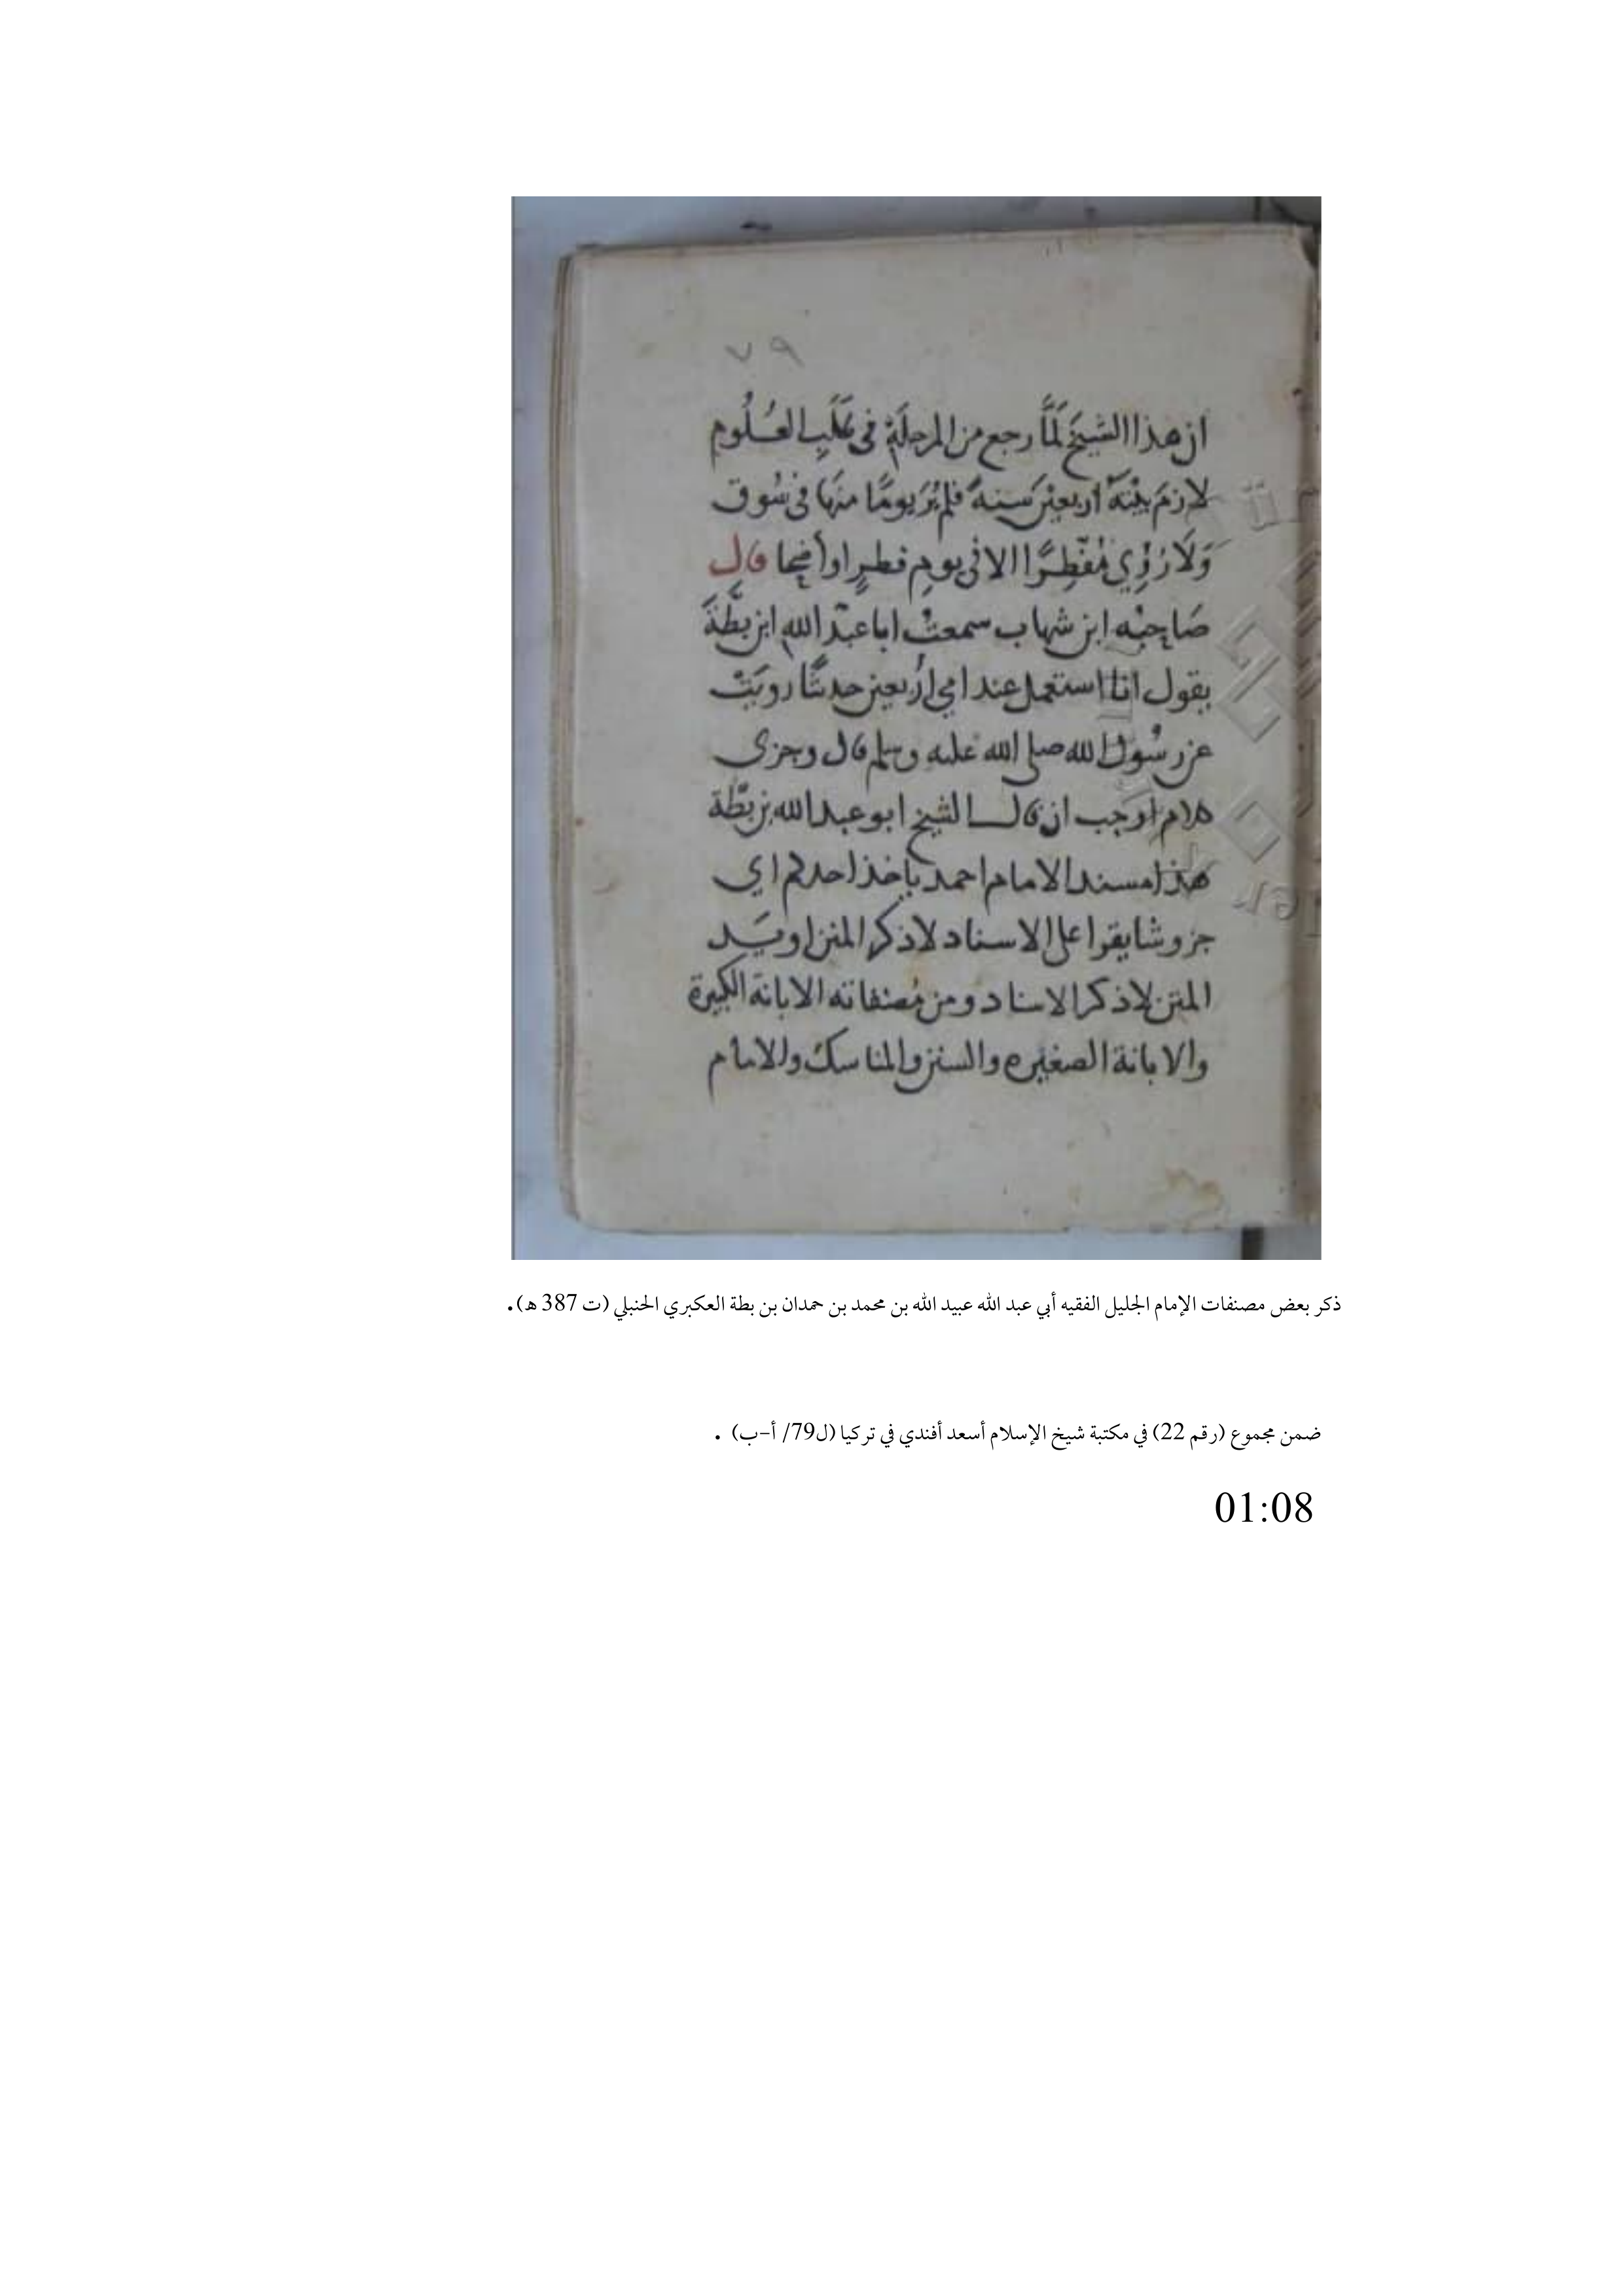 ٧٩
ان هذا الشيخ لَمَّا رجع من الرحلَةِ فى طَلَبِ العُلُومِ
لازمَ بيْتَهُ اربعيْنَ سنةً فلم يُرَ يومًا منهَا فى سُوق
وَلَا رُؤِي مُفْطِرًا الا فى يومِ فطرٍ او أضحا قال
صَاحِبُه ابن شهاب سمعتُ ابا عبْدَ الله ابن بطَّةَ
يقول انا استعمل عند امي أربعين حديثًا رويَتْ
عن رسُول الله صلى الله عليه وسلم قال وجرى
كلام اوجب ان قال الشيخ ابو عبد الله بن بطّة
هذا مسند الامام احمد ياخذ احدكم اي
جزو شا يقرا على الاسناد لاذكر المتن او
المتن لاذكر الاسناد ومن مُصنفاته الابانة الكبيرة
والابانة الصغيره والسنن والمناسك والامام
ذكر بعض مصنفات الإمام الجليل الفقيه أبي عبد الله عبيد الله بن محمد بن حمدان بن بطة العكبري الحنبلي (ت 387 هـ).
ضمن مجموع (رقم 22) في مكتبة شيخ الإسلام أسعد أفندي في تركيا (ل79/ أ-ب) .
01:08